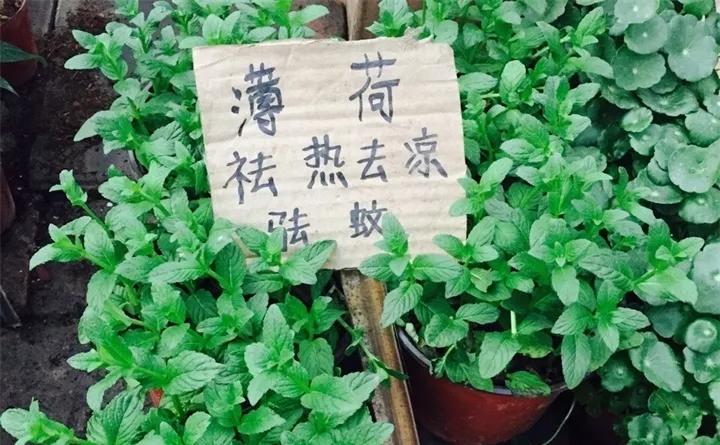 薄荷
祛热去凉
驻蚊